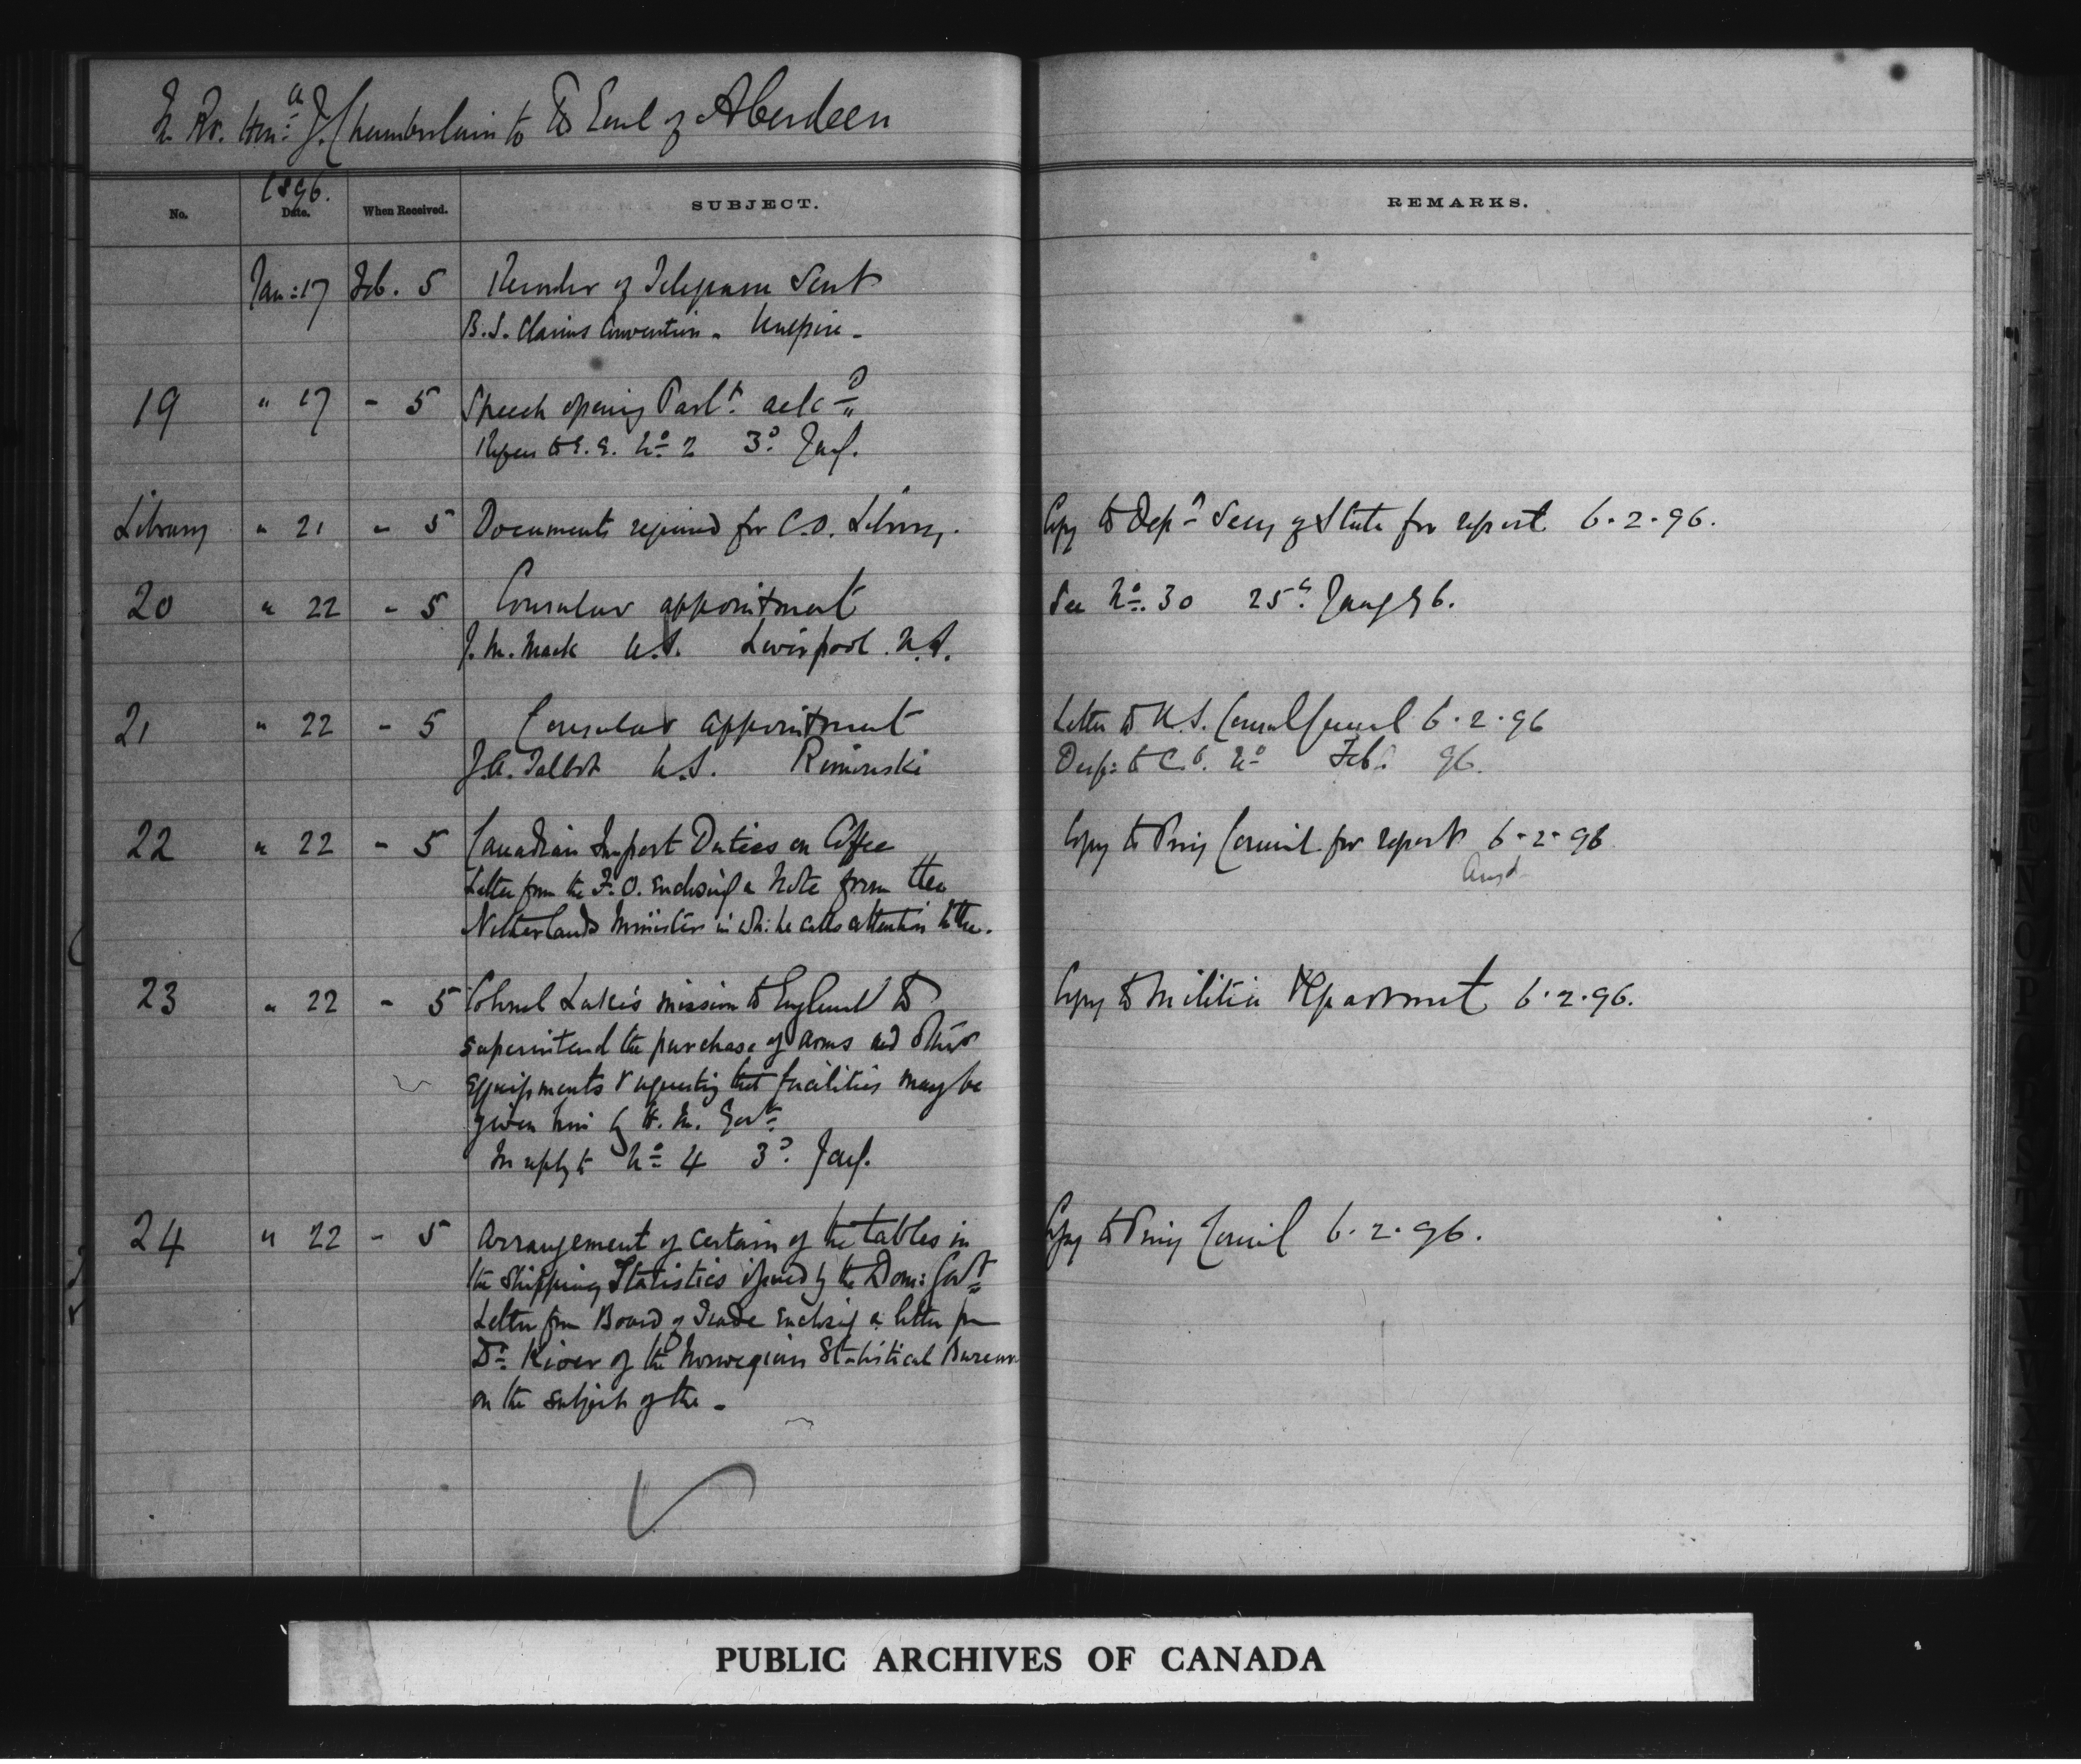 Rt. Hon: J. Chamberlain to The Earl of Aberdeen
No.
1896.
Date.
When Received.
SUBJECT.
REMARKS.
Jan: 17 Feb. 5 Number of Telegram Sent
B.S. Claims Convention - Umpire -
19 " 17 - 5 Speech opening Parlt. ackd
Refers to G.G. No 2 3d Jany.
Library " 21 - 5 Documents required for C.O. Library. Copy to Dept Secy of State for report 6.2.96.
20 " 22 - 5 Consular appointment See No. 30 25th Jany 96.
J. M. Mack U.S. Liverpool. N.S.
21 " 22 - 5 Consular appointment Letter to U.S. Consul General 6.2.96
J.A. Talbot U.S. Rimouski Desp: to C.O. No Feb: 96.
22 " 22 - 5 Canadian Import Duties on Coffee Copy to Privy Council for report 6-2-96
Ansd
Letter from the F.O. enclosing a Note from the
Netherlands Minister in wh: he calls attention to the.
23 " 22 - 5 Colonel Lake's mission to England to Copy to Militia Department 6.2.96.
superintend the purchase of arms and other
equipments & requesting that facilities may be
given him by H. M. Govt.
In reply to No 4 3d. Jany.
24 " 22 - 5 Arrangement of certain of the tables in Copy to Privy Council 6.2.96.
the Shipping Statistics issued by the Dom: Govt
Letter from Board of Trade enclosing a letter from
Dr. Kiaer of the Norwegian Statistical Bureau
on the subject of the -
PUBLIC ARCHIVES OF CANADA